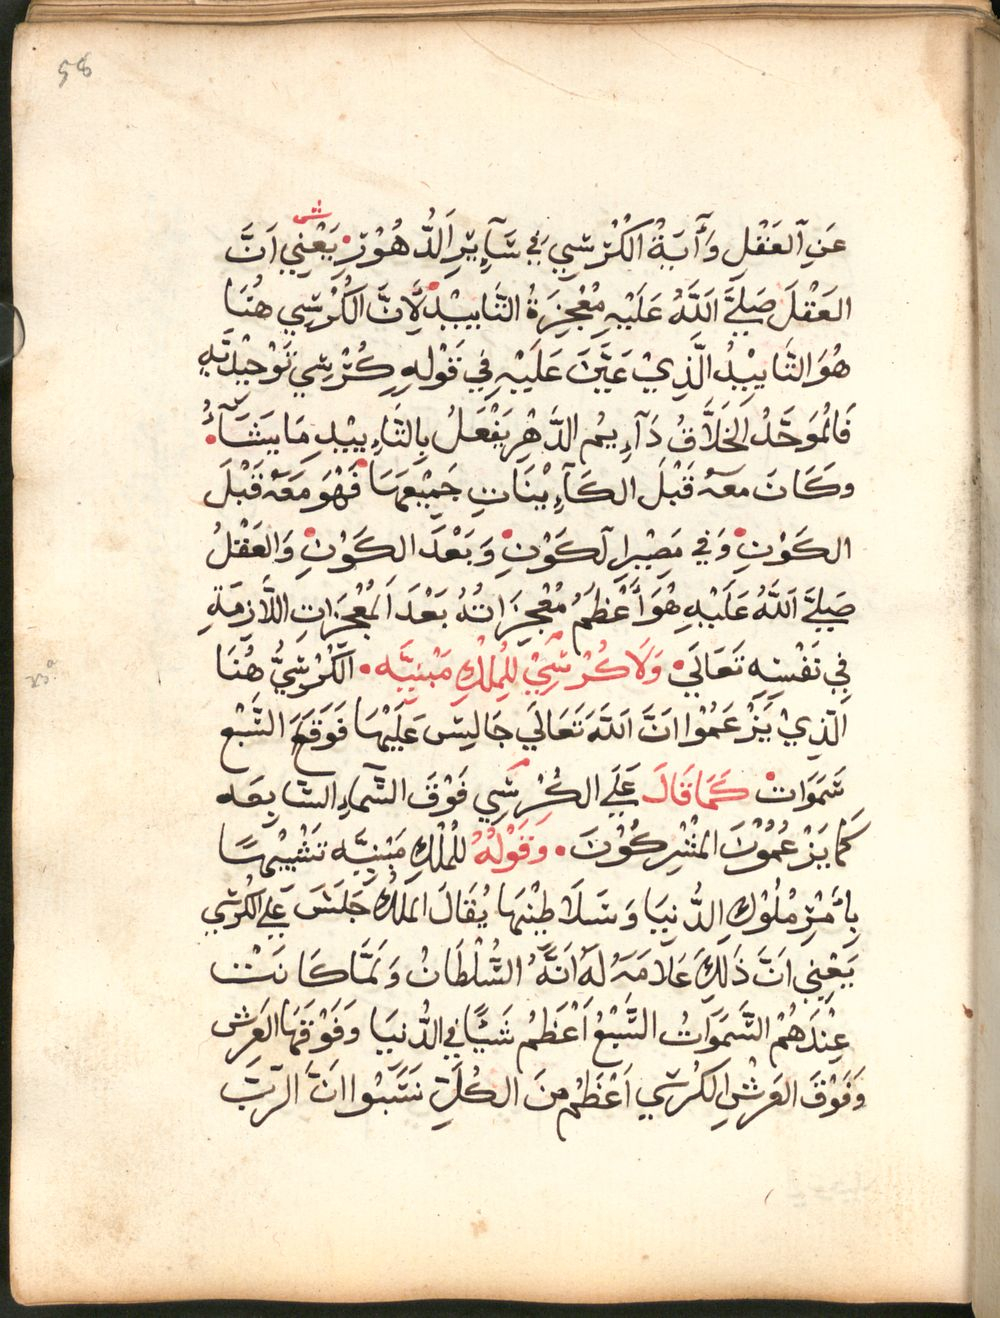 58
ش
عَنِ اَلعَقْلِ وَأَبَةْ الكُرْسِي فِي سَآيِرِ الدُّهُوْرِ. يَعْنِي اَنَّ
العَقْلَ صَلَّے اَللَّهُ عَلَيْهِ مُعْجِزَةُ التَّايِيْدْ لَاِنَّ الكُرْسِي هُنَا
هُوَ التَّايِيْدُ الَّذِيْ عَيَّنَ عَلَيْهِ فِي قَوْلِهِ كُرْسِي تَوْحِيْدَتِهِ
فَالْمُوَحَّدْ الخَلَّاقُ دَآءِيمِ الدَّهْرِ يَفْعَلُ بِالتَّاءِيِيْدِ مَا يَشَآءُ.
وكَانَ مَعَهْ قَبْلَ الكَآءِيْنَاتِ جَمِيْعِهَا. فَهْوَ مَعَهْ قَبْلَ
الكَوْنِ. وَفِي مَصِيْرِ اَلكَوْنِ. وَبَعْدَ الكَوْنِ. وَالعَقْلُ
صَلَّے اَللَّهُ عَلَيْهِ هُوَ أَعْظَمُ مُعْجِزَاتُهُ بَعْدَ اَلمُعْجِزَاتِ اللَّازِمَةِ
فِي نَفْسِهِ تَعَالَي. وَلَا كُرْسِيْ لِلْمُلْكِ مَبْنِيَّه. اَلكُرْسِيُّ هُنَا
الَّذِيْ يَزْعَمُوا اَنَّ اَللَّهَ تَعَالَي جَالِسْ عَلَيْهَا فَوَقَعَ السَّبْع
سَمَوَاتْ. كَمَا قَالَ عَلَي الكُرْسِي فَوْقَ السَّمَاءِ السَّابِعَه
كَمَا يَزْعُمُوْنَ المُشْرِكُوْنَ. وَقَوْلُهُ لِلْمُلْكِ مَبْنِيَّه تَشْبِيْهًا
بِأَمْرِ مُلُوْكِ الدُّنِيَا وَسَلَاطِيْنِهَا يُقَالَ المَلِكْ جَلَسَ عَلَي الكُرْسِي
يَعْنِي اَنَّ ذَلِكَ عَلَامَهْ لَهُ اَنَّهُ السُّلْطَانْ وَلَمَّا كَانَتْ
عِنْدَهُمْ السَّمَوَاتُ السَّبْعْ اَعْظَمُ شَيًْا فِي الدُّنْيَا وَفَوْقَهَا العَرْش
وَفَوْقَ العَرْشِ الكُرْسِي اَعْظَمْ مِنَ الكُلِّ نَسَبُوا اَنَّ الرَّبَّ